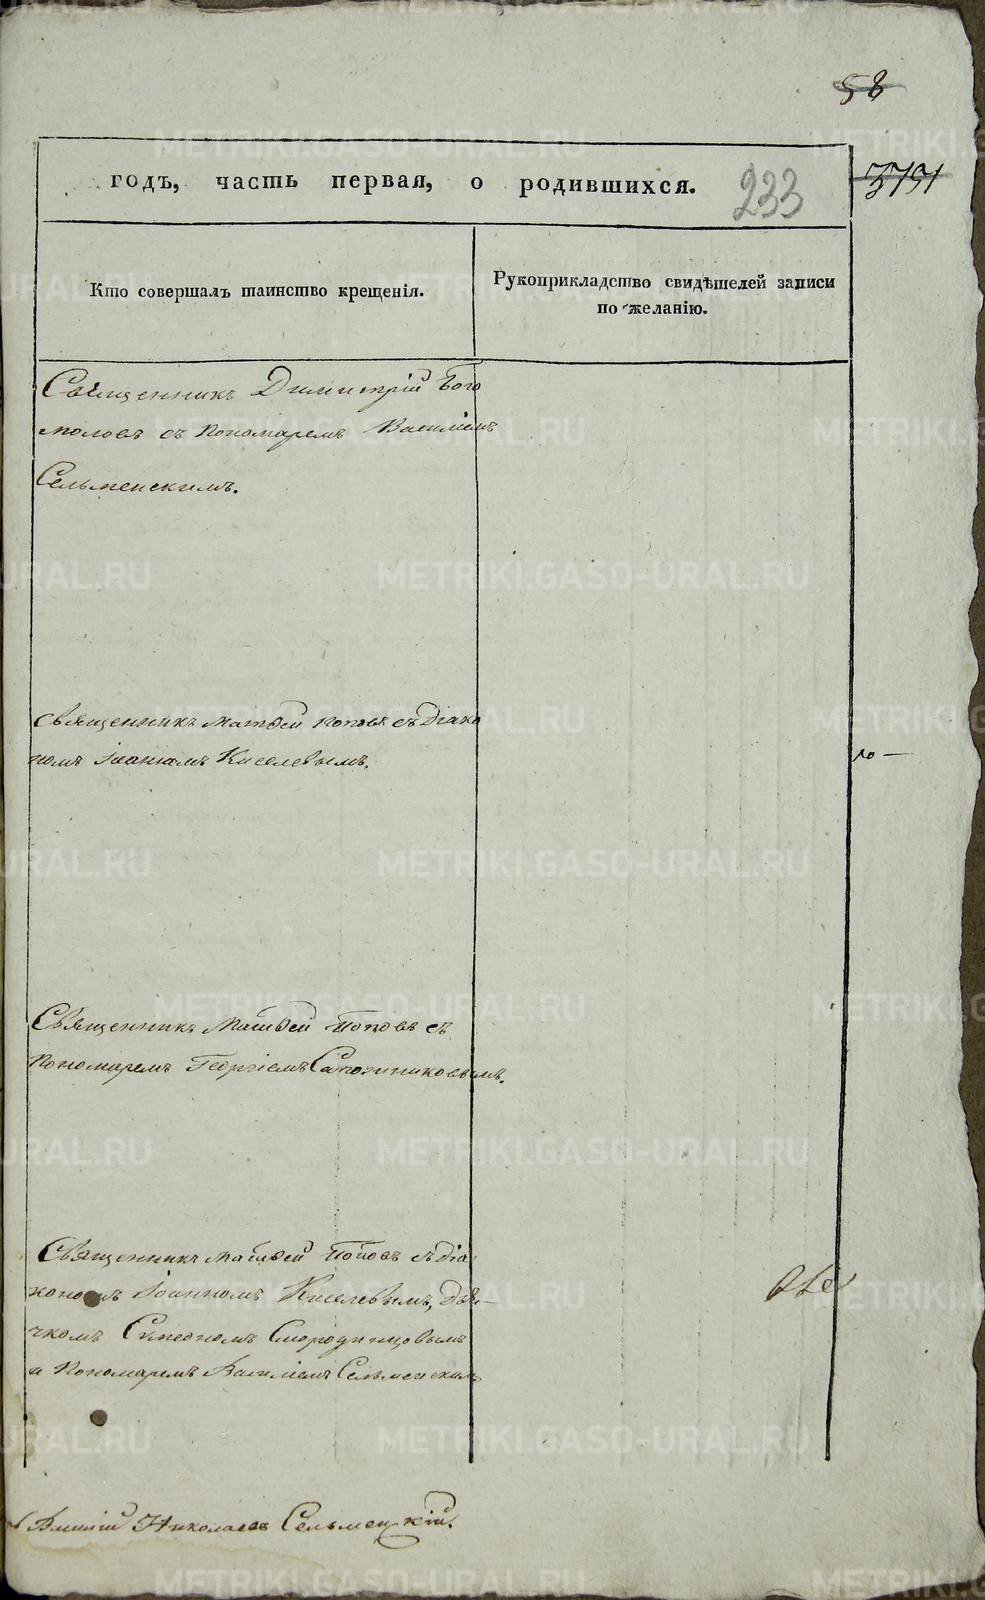 58
годъ, часть первая, о родившихся. 233
Кто совершалъ таинство крещенія.
Рукоприкладство свидѣтелей записи
по желанію.
Священникъ Димитрій Бого
моловъ съ Пономаремъ Василіемъ
Сельменскимъ.
Священникъ Матѳей Поповъ съ Діако
номъ Іоанномъ Киселевымъ.
Священникъ Матѳей Поповъ съ
Пономаремъ Георгіемъ Сапожниковымъ.
Священникъ Матѳей Поповъ съ Діа
кономъ Іоанномъ Киселевымъ, Дья-
чкомъ Симеономъ Смородинцовымъ
и Пономаремъ Василіемъ Сельменскимъ
Николаевъ Сельменскій.
METRIKI.GASO-URAL.RU